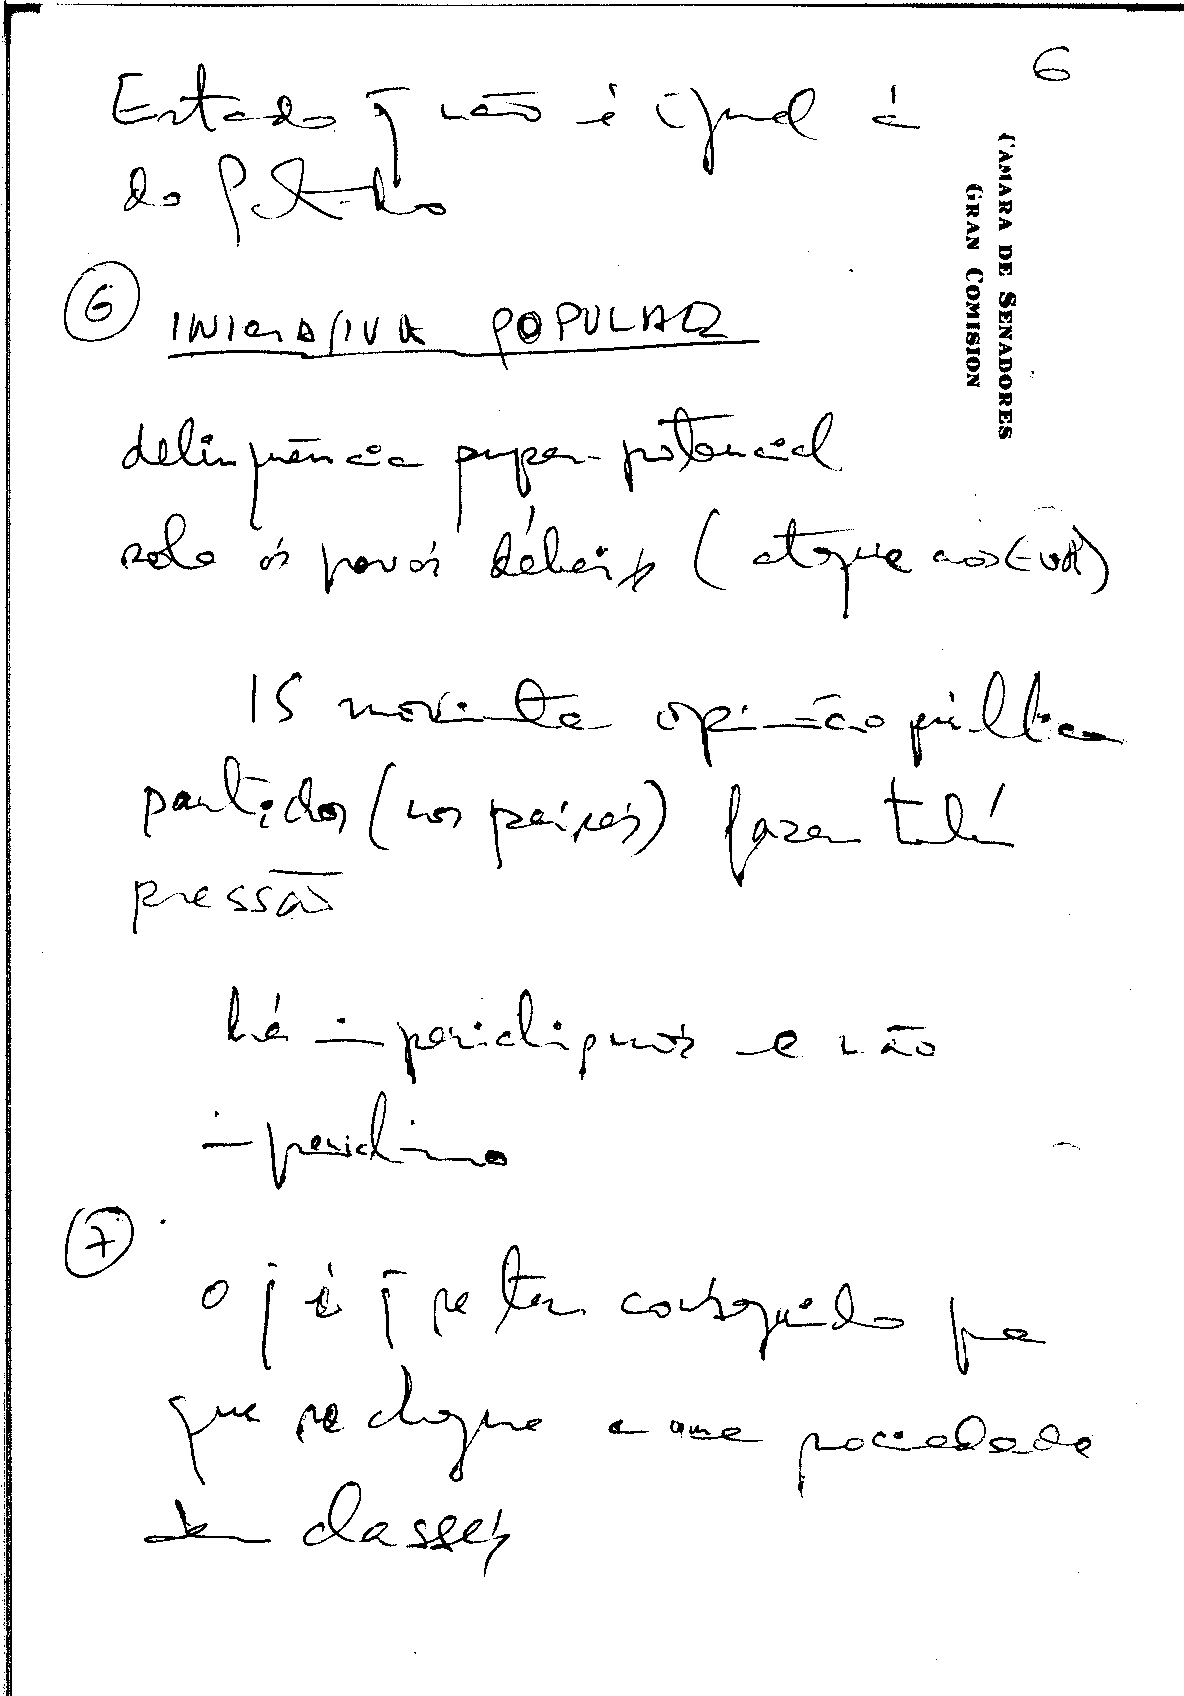 6
CAMARA DE SENADORES
GRAN COMISION
Estado q̄ não é igual á
do Partido
6 INICIATIVA POPULAR
delinquência super-potencial
sobre os povos débeis (ataque aos EUA)
IS movimenta opinião pública
partidos (nos países) fazem também
pressão
há imperialismos e não
imperialismo
7
O q é q̄ se tem conseguido pa
que se chegue a uma sociedade
sem classes